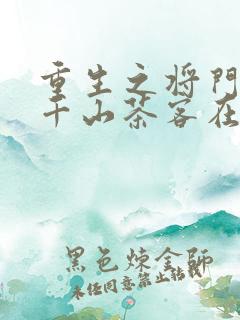 重生之将門
千山茶客在
黑色煉金師
未经同意禁止转载